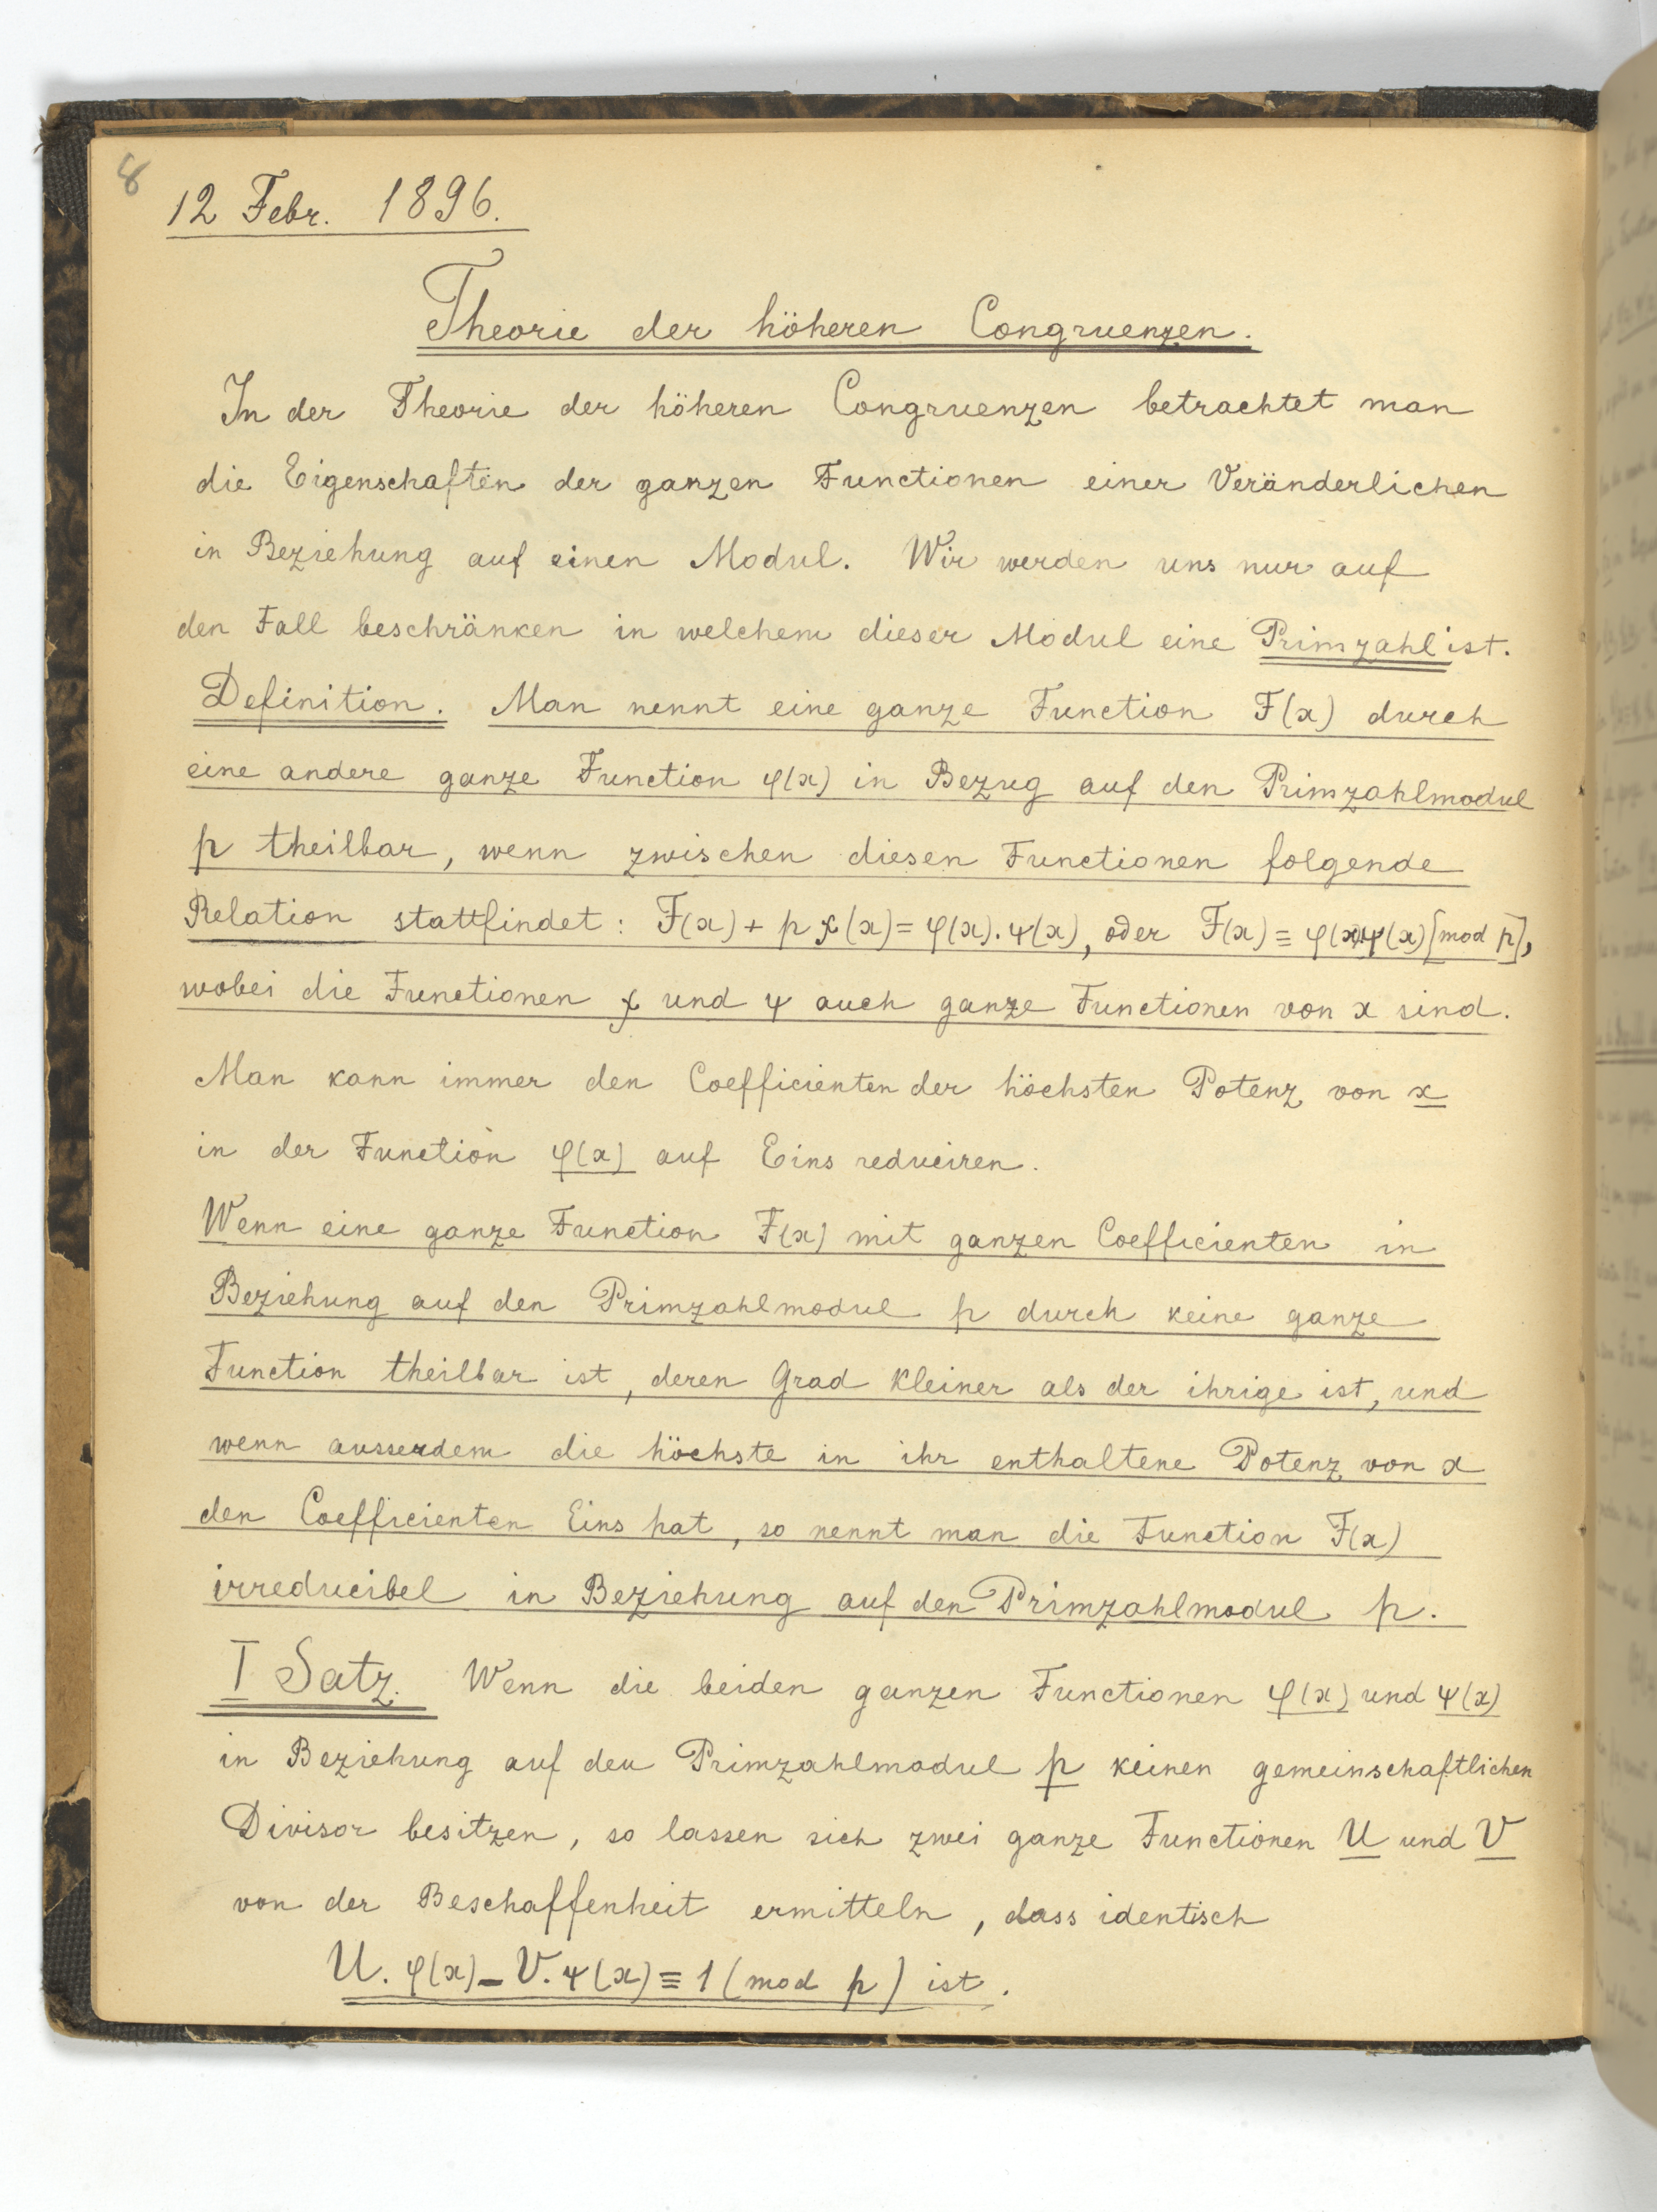 8
12 Febr. 1896.
Theorie der höheren Congruenzen.
In der Theorie der höheren Congruenzen betrachtet man
die Eigenschaften der ganzen Functionen einer Veränderlichen
in Beziehung auf einen Modul. Wir werden uns nur auf
den Fall beschränken in welchem dieser Modul eine Primzahl ist.
Definition. Man nennt eine ganze Function F(x) durch
eine andere ganze Function φ(x) in Bezug auf den Primzahlmodul
p theilbar, wenn zwischen diesen Functionen folgende
Relation stattfindet: F(x) + p χ(x) = φ(x). ψ(x), oder F(x) ≡ φ(x).ψ(x) [mod p],
wobei die Functionen χ und ψ auch ganze Functionen von x sind.
Man kann immer den Coefficienten der höchsten Potenz von x
in der Function φ(x) auf Eins reduciren.
Wenn eine ganze Function F(x) mit ganzen Coefficienten in
Beziehung auf den Primzahlmodul p durch keine ganze
Function theilbar ist, deren Grad kleiner als der ihrige ist, und
wenn ausserdem die höchste in ihr enthaltene Potenz von x
den Coefficienten Eins hat, so nennt man die Function F(x)
irreducibel in Beziehung auf den Primzahlmodul p.
I Satz. Wenn die beiden ganzen Functionen φ(x) und ψ(x)
in Beziehung auf den Primzahlmodul p keinen gemeinschaftlichen
Divisor besitzen, so lassen sich zwei ganze Functionen U und V
von der Beschaffenheit ermitteln, dass identisch
U. φ(x) – V. ψ(x) ≡ 1 (mod p) ist.